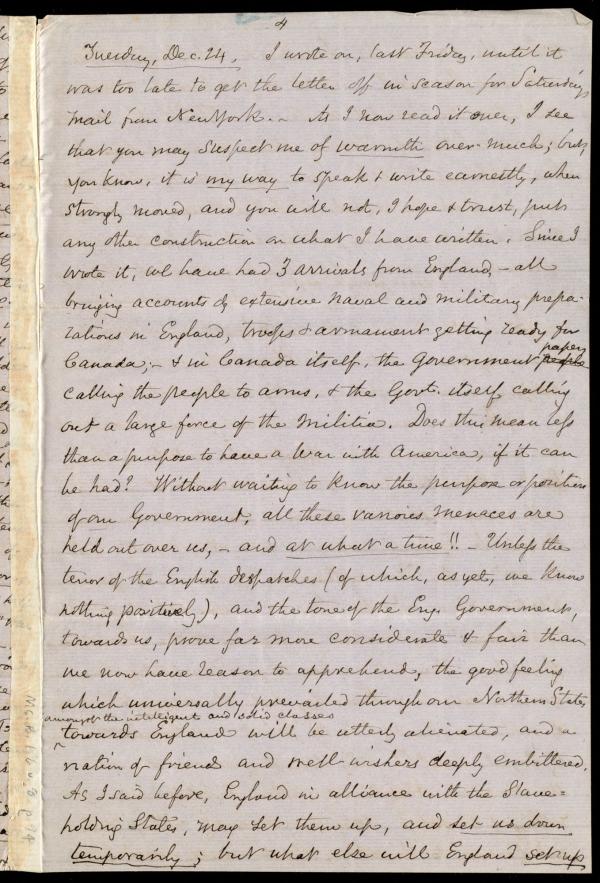 4
Tuesday, Dec. 24. I wrote on, last Friday, until it
was too late to get the letter off in season for Saturday's
mail from New York. - As I now read it over, I see
that you may suspect me of warmth over-much; but,
you know, it is my way to speak & write earnestly, when
strongly moved, and you will not, I hope & trust, put
any other construction on what I have written. Since I
wrote it, we have had 3 arrivals from England, - all
bringing accounts of extensive naval and military prepa-
rations in England, troops & armament getting ready for
Canada; - & in Canada itself, the Government papers people
calling the people to arms, & the Govt. itself calling
out a large force of the militia. Does this mean less
than a purpose to have a War with America, if it can
be had? Without waiting to know the purpose or position
of our Government, all these various menaces are
held out over us, - and at what a time!! - Unless the
tenor of the English despatches (of which, as yet, we know
nothing positively), and the tone of the Eng. Government,
towards us, prove far more considerate & fair than
we now have reason to apprehend, the good feeling
which universally prevailed through our Northern States,
amongst the intelligent and solid classes
towards England will be utterly alienated, and a
nation of friends and well-wishers deeply embittered.
As I said before, England in alliance with the Slave=
holding States, may set them up, and set us down
temporarily; but what else will England set up